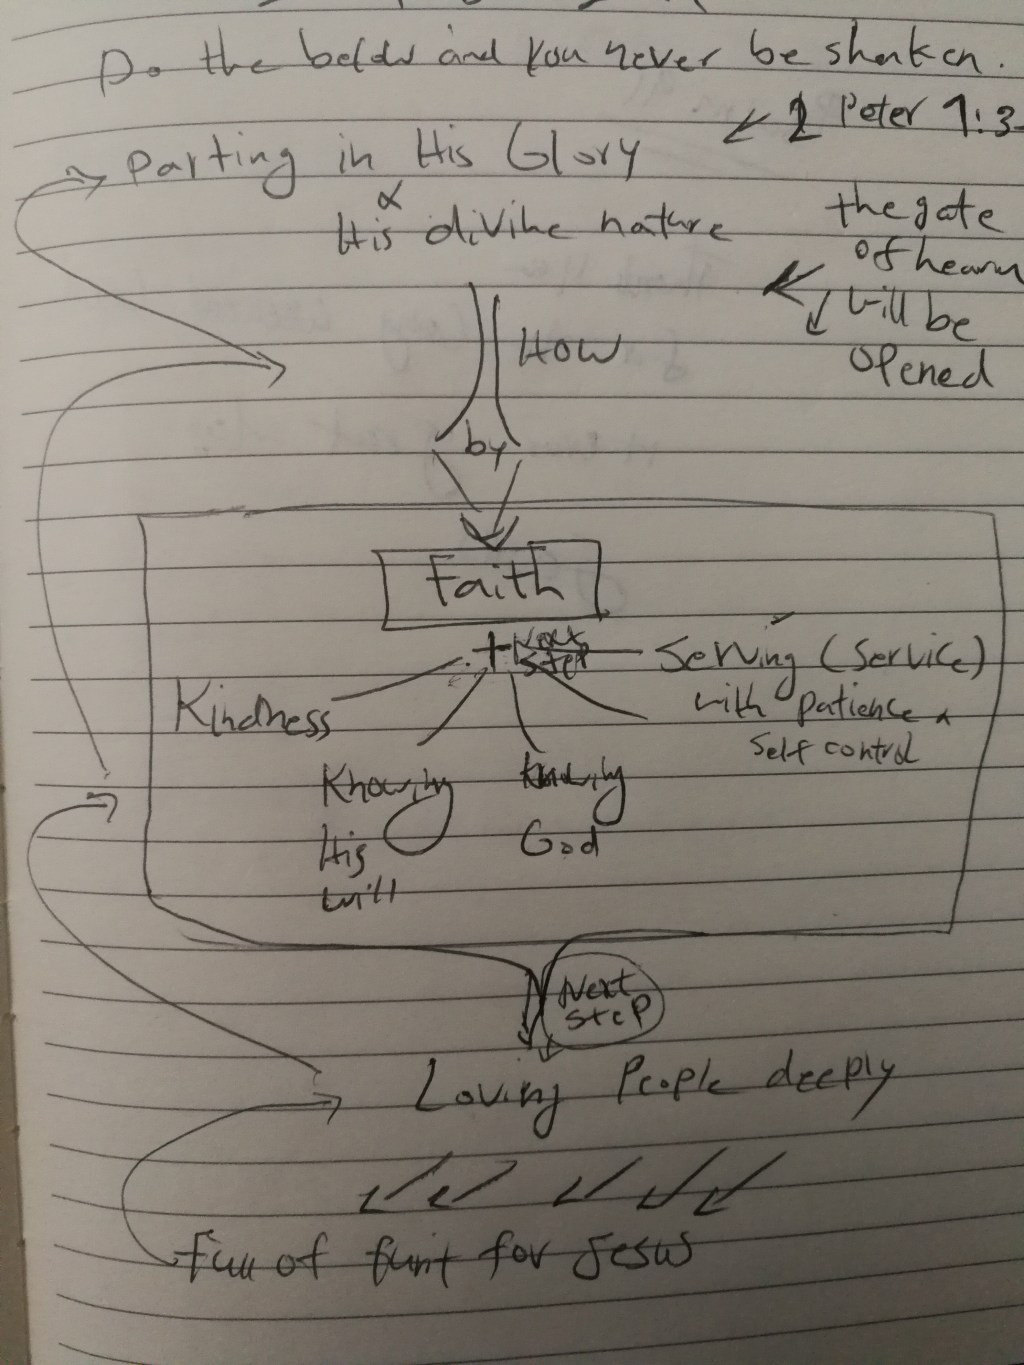 Do the below and you never be shaken.
2 Peter 1:3-
Parting in His Glory
&
His divine nature
the gate
of heavn
will be
opened
How
by
Faith
+ Next
step
Serving (Service)
with patience &
self control
Kindness
Knowing
His
will
Knowing
God
Next
step
Loving People deeply
Full of furit for Jesus